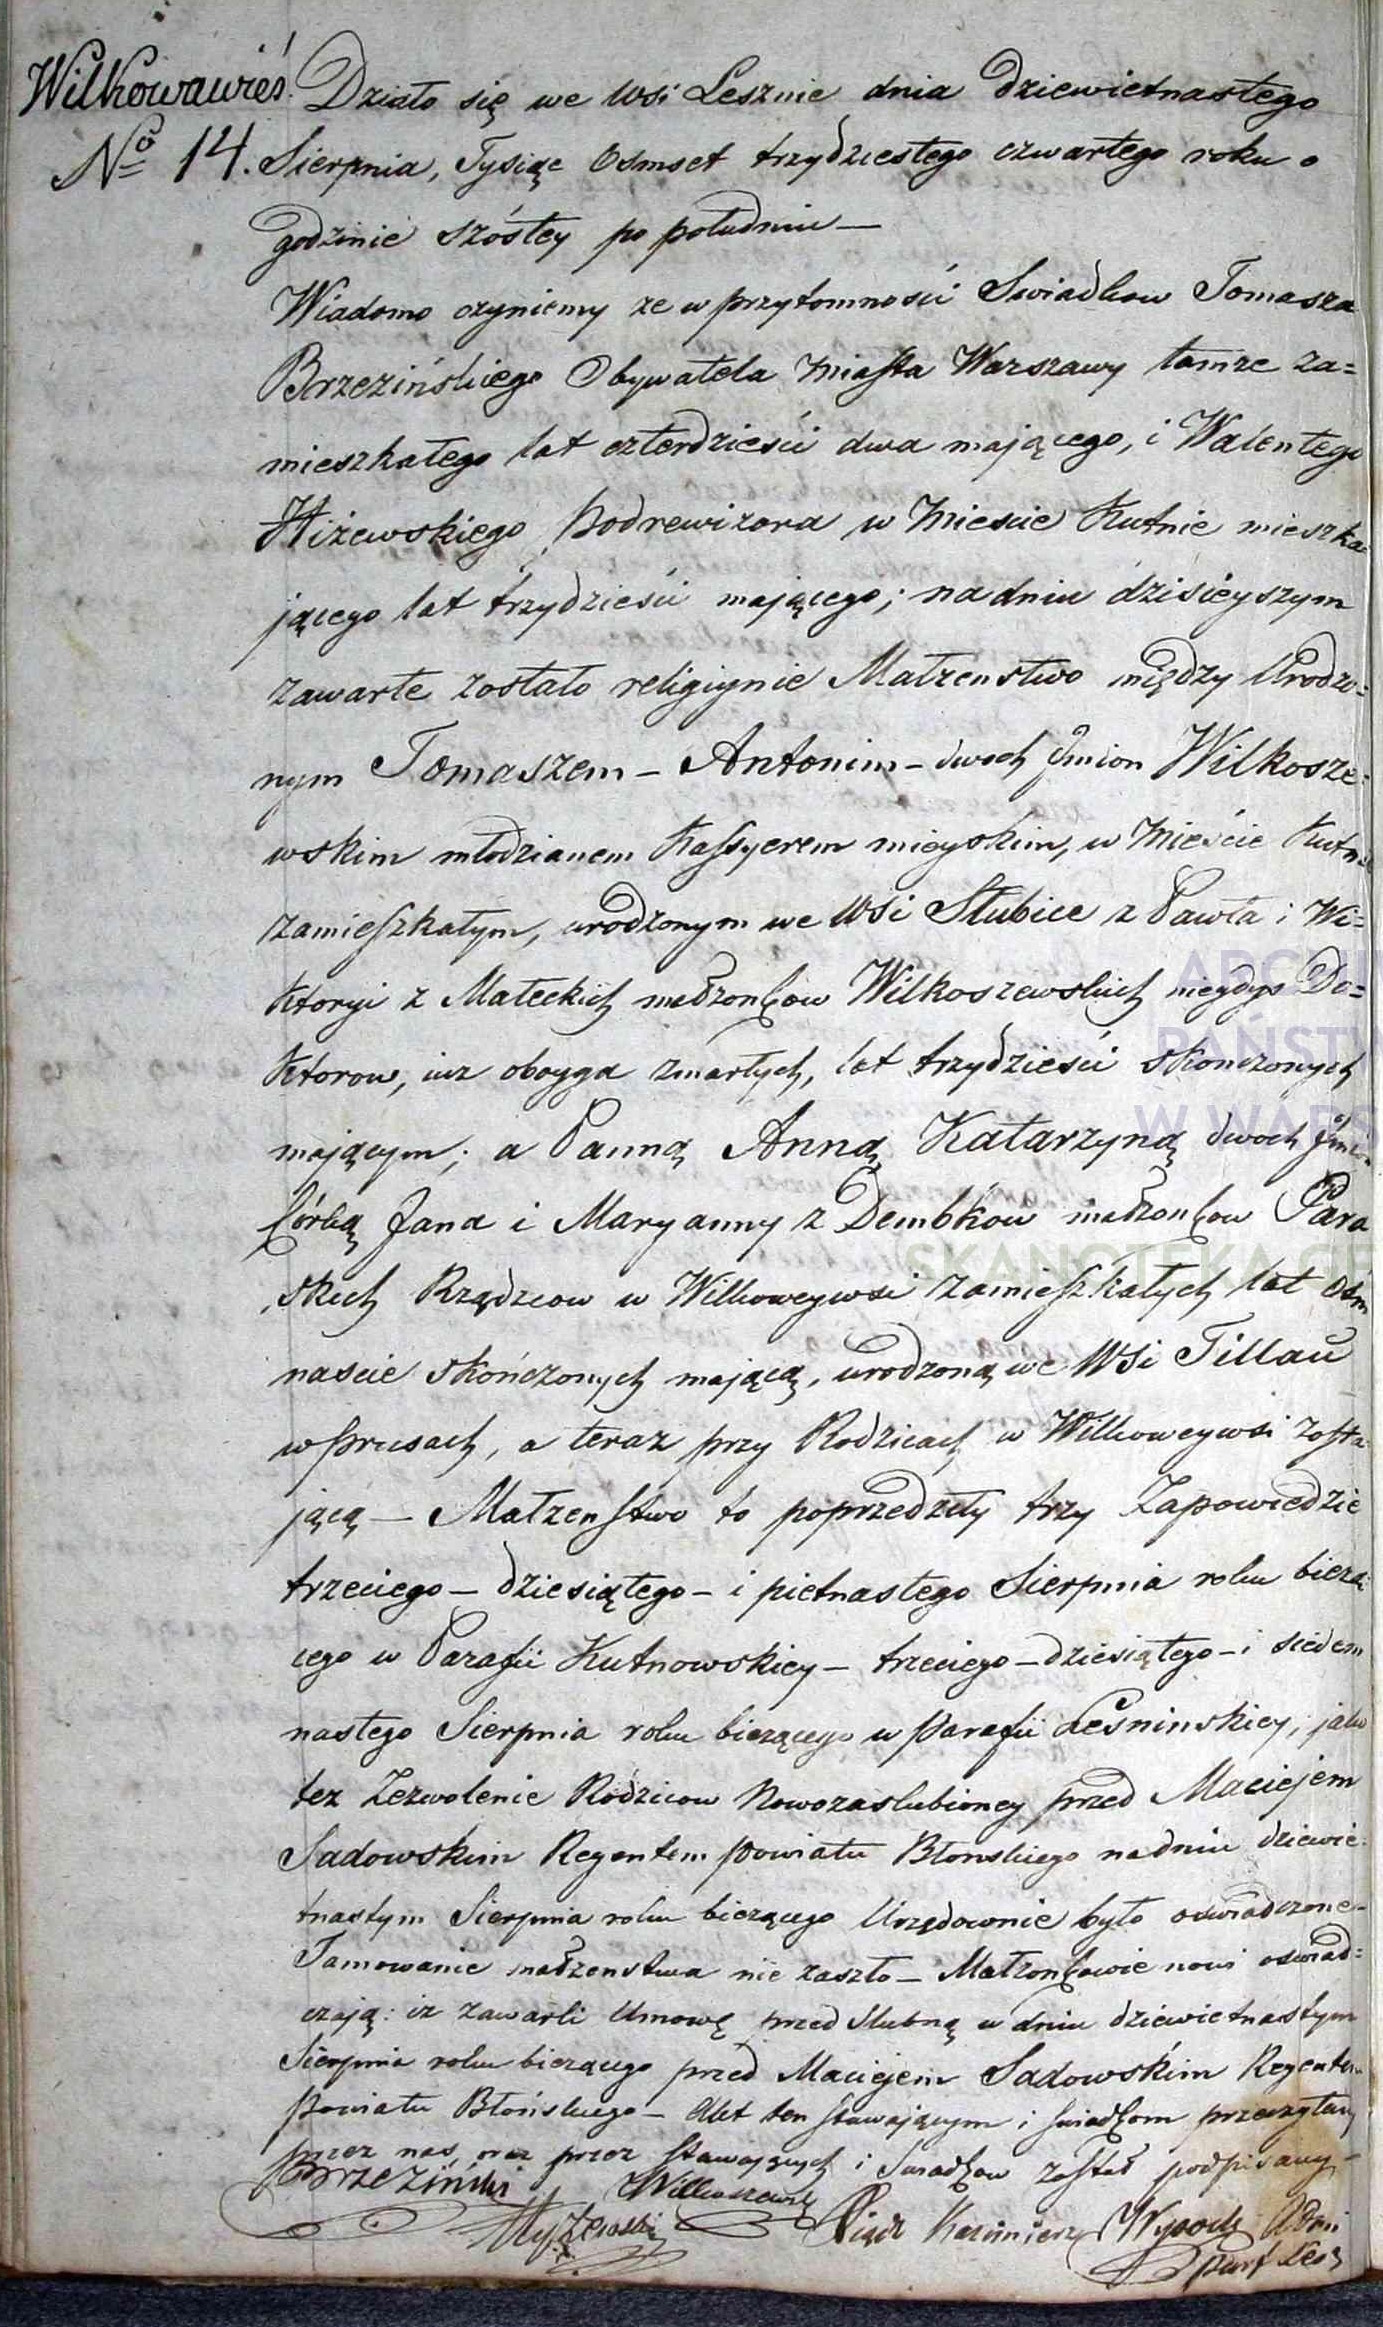 Wilkowawieś. Działo się we wsi Lesznie dnia dziewiętnastego
No 14. Sierpnia, Tysiąc Osmset trzydziestego czwartego roku o
godzinie szóstey po południu —
Wiadomo czyniemy ze w przytomności Swiadkow Tomasza
Brzezińskiego Obywatela Miasta Warszawy tamze za=
mieszkałego lat czterdzieści dwa mającego, i Walentego
Hiżewskiego Podrewizora w Mieście Kutnie mieszka=
jącego lat trzydzieści mającego; na dniu dzisieyszym
zawarte zostało religiynie Małzenstwo między Urodzo=
nym Tomaszem - Antonim - dwoch Jmion Wilkosze=
wskim młodzianem Kassyerem mieyskim, w Mieście Kutnie
zamieszkałym, urodzonym we Wsi Słubice z Pawła i Wi=
ktoryi z Małeckich małzonkow Wilkoszewskich niegdys Do=
ktorow, iuz oboyga zmarłych, lat trzydzieści skonczonych
mającym; a Panną Anną Katarzyną dwoch Jmion
Córką Jana i Maryanny z Dembkow małzonkow Para
skich Rządzcow w Wilkoweywsi zamieszkałych lat ośm
nascie skończonych mającą, urodzoną we Wsi Tillau
w Prusach, a teraz przy Rodzicach w Wilkoweywsi zosta
jącą — Małzenstwo to poprzedziły trzy Zapowiedzie
trzeciego - dziesiątego - i piętnastego Sierpnia roku bieżą
cego w Parafii Kutnowskiey - trzeciego - dziesiątego - i siedem
nastego Sierpnia roku biezącego w Parafii Leśninskiey, jako
tez Zezwolenie Rodzicow Nowozaslubioney przed Maciejem
Sadowskim Regentem Powiatu Błonskiego na dniu dziewię=
tnastym Sierpnia roku biezącego Urzędownie było oswiadczone -
Tamowanie małzenstwa nie zaszło - Małzonkowie nowi oswiad=
czają: iz zawarli Umowę przed slubną w dniu dziewiętnastym
Sierpnia roku biezącego przed Maciejem Sadowskim Regentem
Powiatu Błońskiego - Akt ten stawającym i swiadkom przeczytany
przez nas, oraz przez stawających i Swiadkow został podpisany -
Brzeziński Wilkoszewski
Hyżewski Xiądz Kazimierz Wysocki Admi
Parf Lesz
ARCHI
PAŃSTW
W WARS
SKANOTEKA.GE